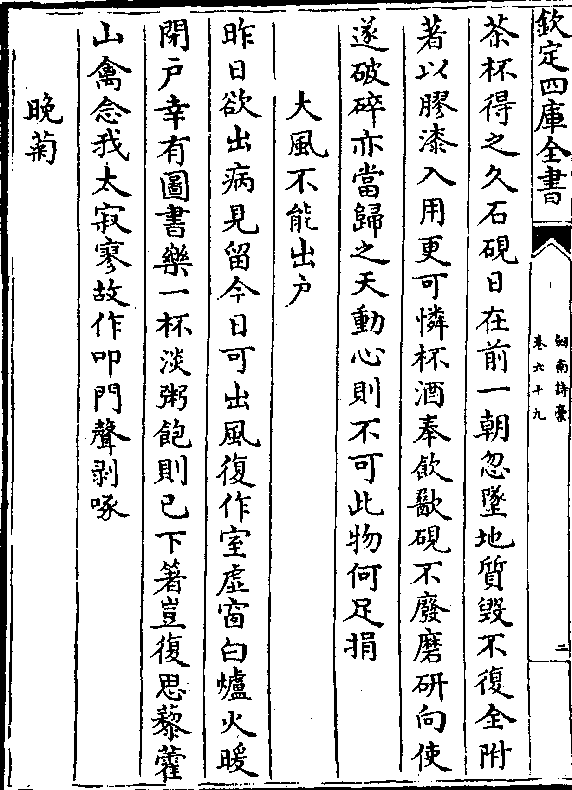 欽定四庫全書
劒南詩藁
卷六十九
二
茶杯得之久石硯日在前一朝忽墜地質毀不復全附
著以膠漆入用更可憐杯酒奉飲歠硯不廢磨研向使
遂破碎亦當歸之天動心則不可此物何足捐
大風不能出户
昨日欲出病見留今日可出風復作室虚窗白爐火暖
閉戸幸有圖書樂一杯淡粥飽則已下箸豈復思藜藿
山禽念我太寂寥故作叩門聲剥啄
晚菊